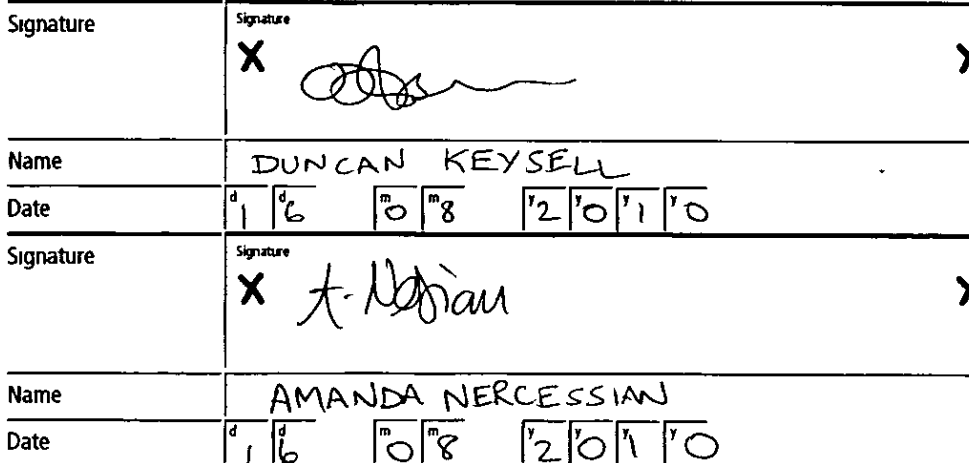 Signature Signature
X
Name DUNCAN KEYSELL
Date d1 d6 m0 m8 y2 y0 y1 y0
Signature Signature
X A. 
Name AMANDA NERCESSIAN
Date d1 d6 m0 m8 y2 y0 y1 y0